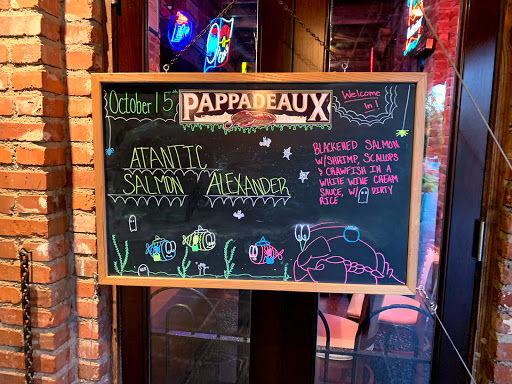 October 15th
PAPPADEAUX
Welcome
In!
ATANTIC
SALMON ALEXANDER
BLACKENED SALMON
W/SHRIMP, SCALLOPS
& CRAWFISH IN A
WHITE WINE CREAM
SAUCE, W/ DIRTY
RICE